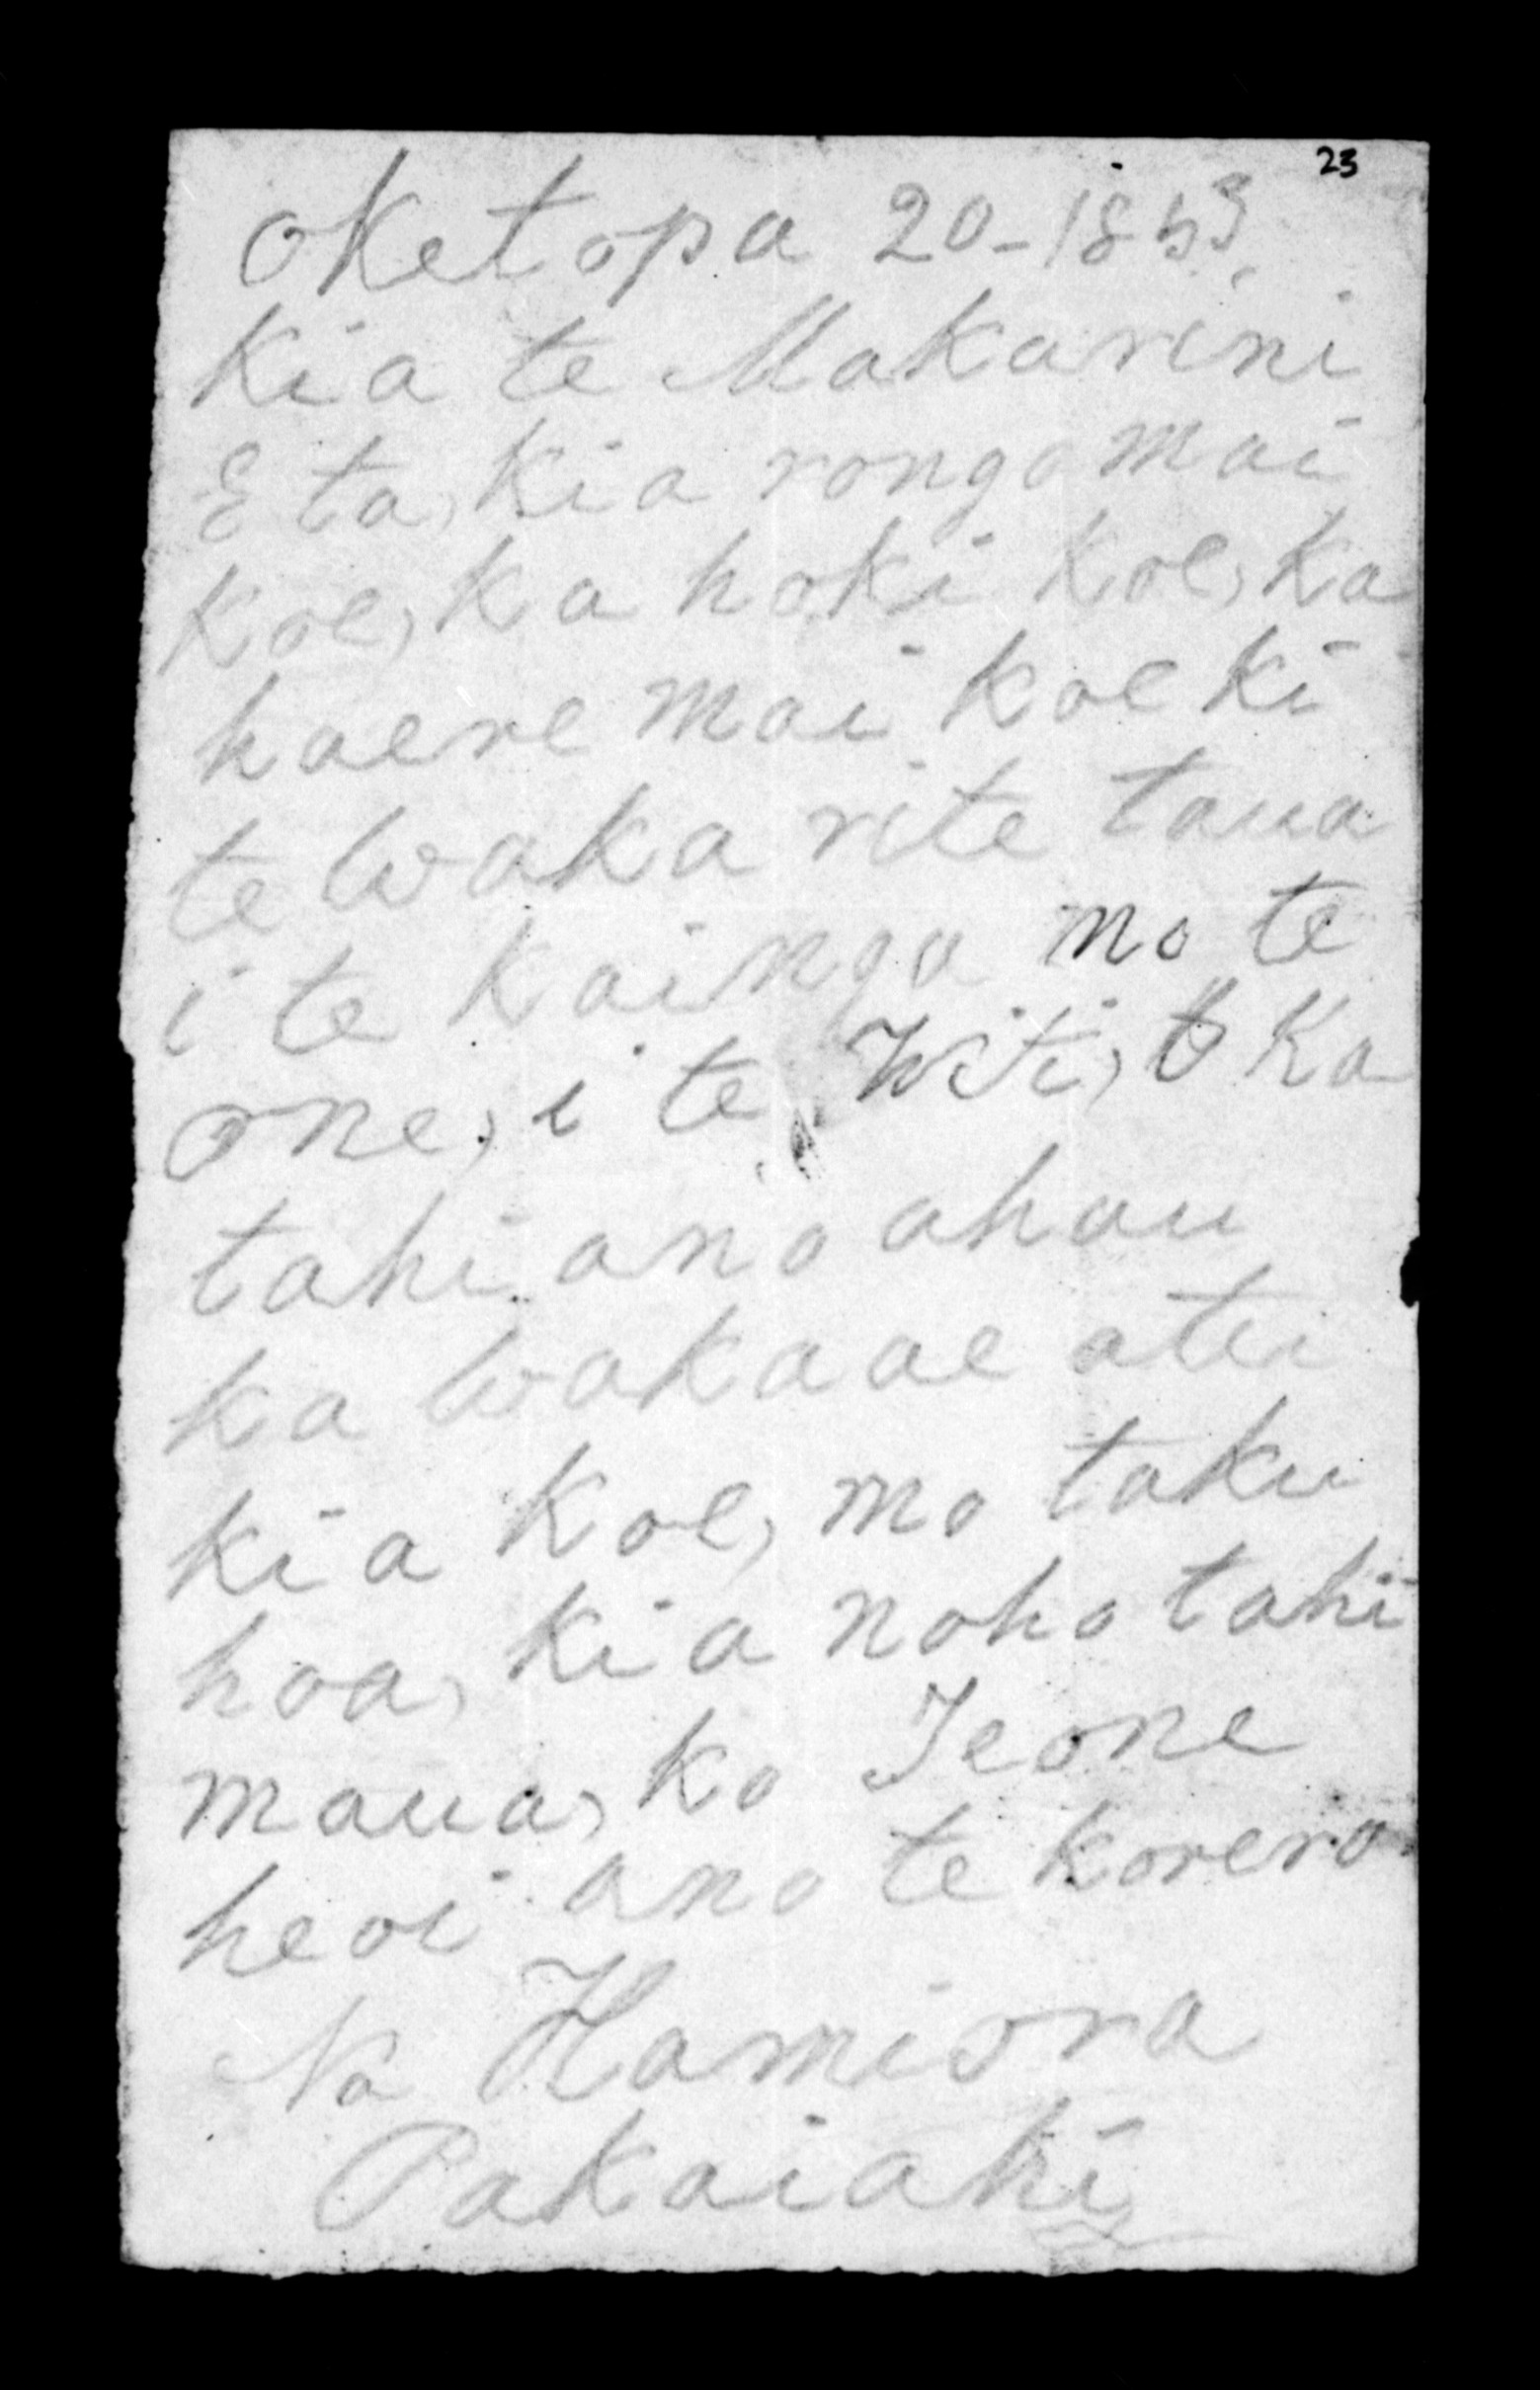 23
Oketopa 20-1853.
Kia te Makarini
E ta, Kia rongo mai
Koe, Ka hoki Koe, Ka
haere mai Koe Ki
te Waka rite taua
i te Kainga mo te
one, i te Witi, Ka
tahi ano ahau
Ka Wakaae atu
Kia Koe, mo taku
hoa, Kia noho tahi
maua, Ko Teone
heoi ano te Korero
Na Hamiora
Pakaiahi